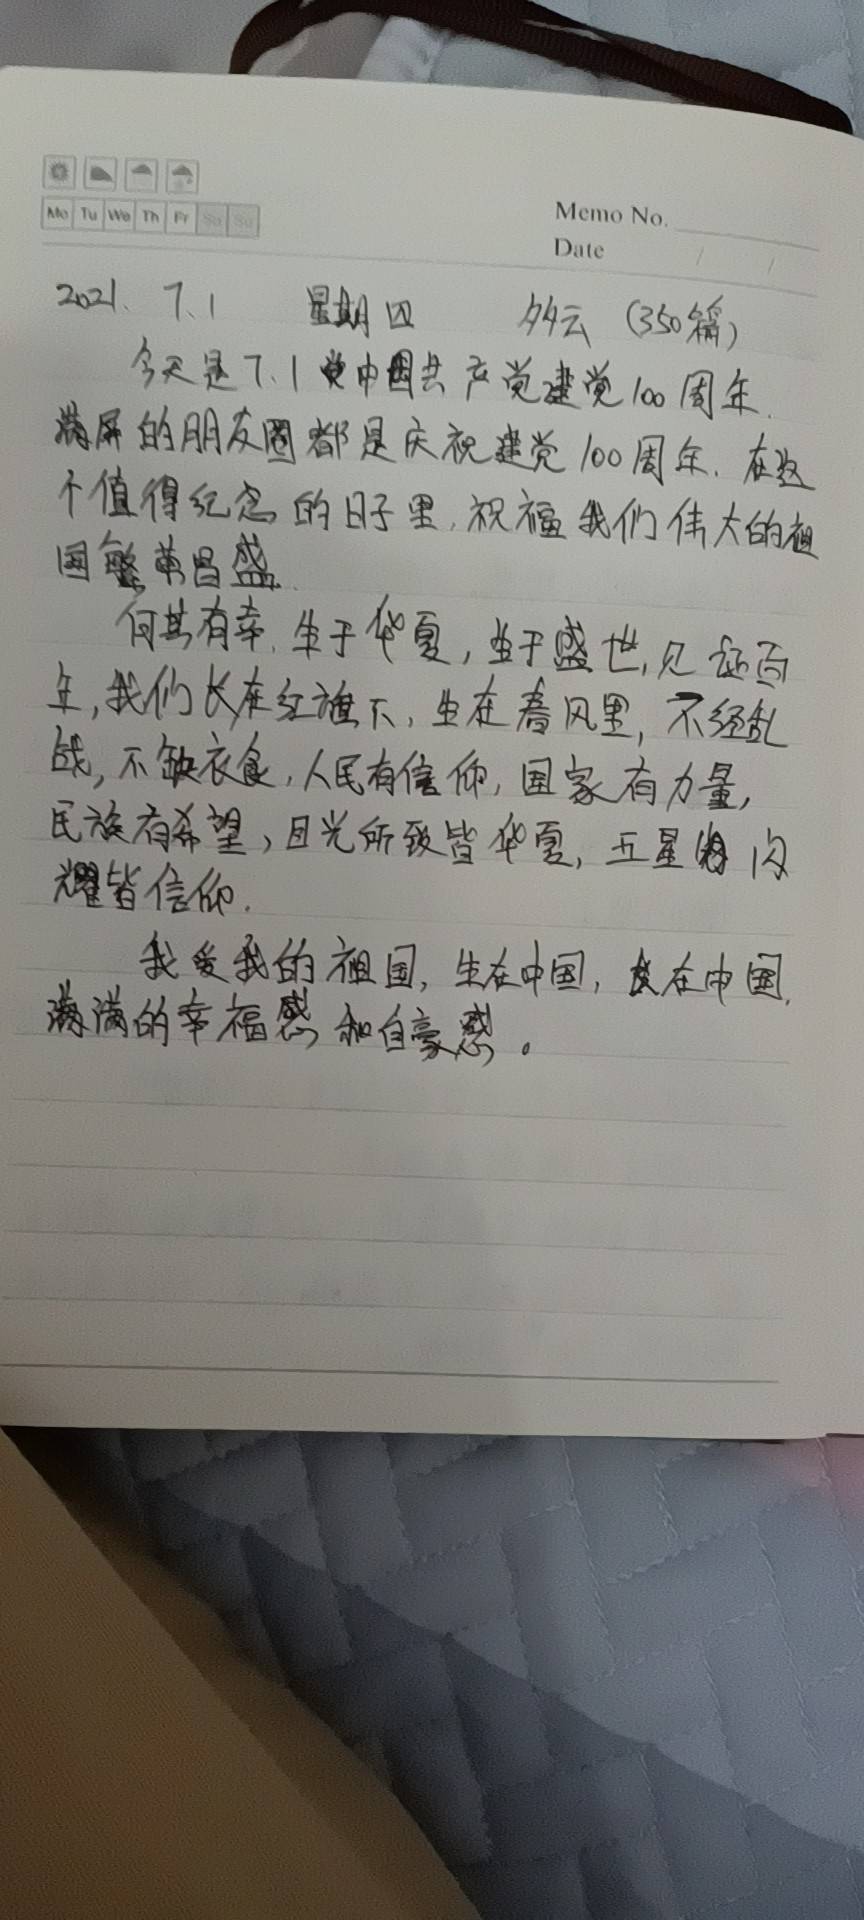 Mo Tu We Th Fr Sa Su
Memo No.
Date / /
2021. 7.1 星期四 多云 (350篇)
今天是7.1中国共产党建党100周年.
满屏的朋友圈都是庆祝建党100周年. 在这
个值得纪念的日子里,祝福我们伟大的祖
国繁荣昌盛.
何其有幸,生于华夏,生于盛世,见证百
年,我们长在红旗下,生在春风里,不经乱
战,不缺衣食,人民有信仰,国家有力量,
民族有希望,目光所致皆华夏,五星闪
耀皆信仰.
我爱我的祖国,生在中国,长在中国,
满满的幸福感和自豪感。